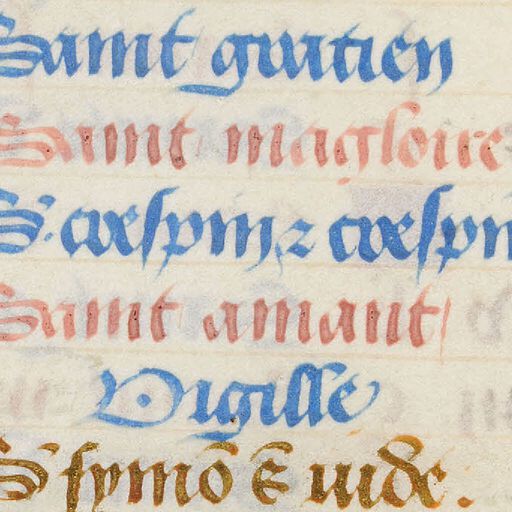 Saint gracien
Saint magloire
S. crespin ⁊ crespin
Saint amant
Vigille
S symō ⁊ iude.